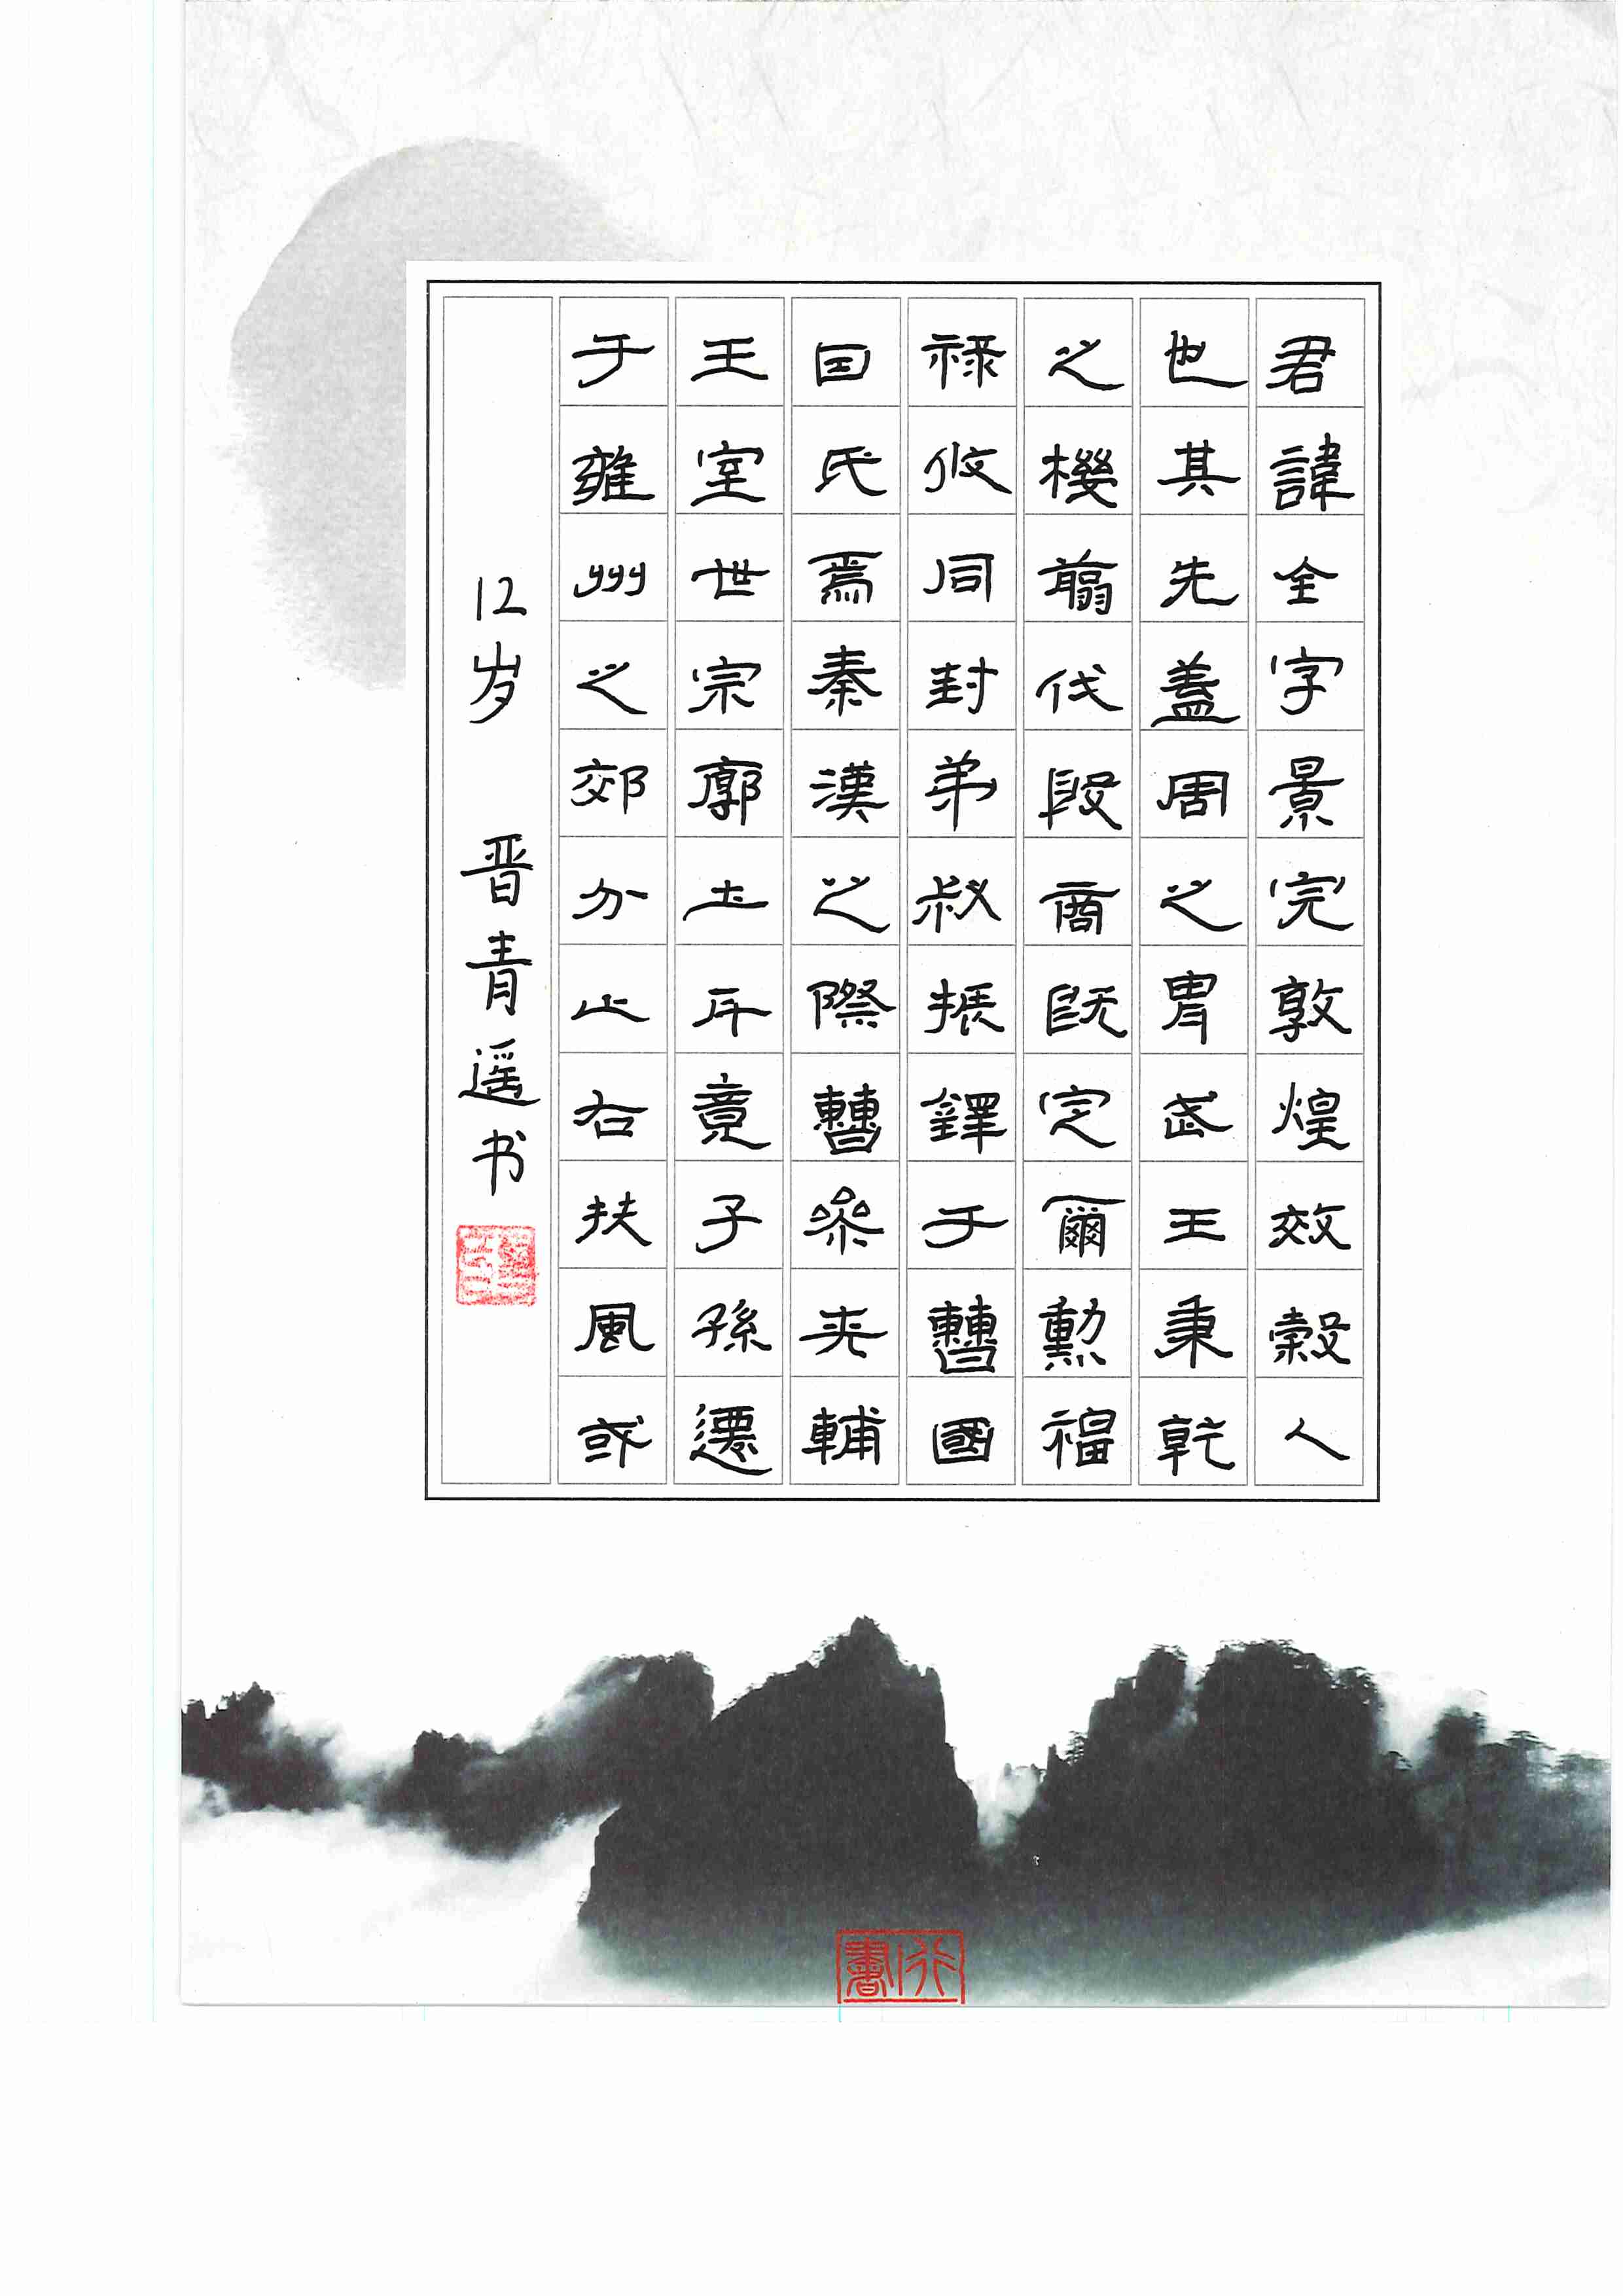 君諱全字景完敦煌效穀人
也其先蓋周之胄武王秉乾
之機翦伐殷商既定爾勳福
祿攸同封弟叔振鐸于曹國
因氏焉秦漢之際曹參夾輔
王室世宗廓土斥竟子孫遷
于雍州之郊分止右扶風或
12岁 晋青遥书
書行